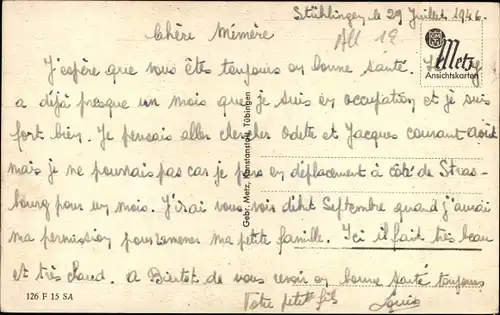 Stühlingen le 29 Juillet 1946.
All 19
Chère Mémère
Metz
Ansichtskarten
J'espère que vous êtes toujours en bonne santé. Il y
a déjà presque un mois que je suis en occupation et je suis
fort bien. Je pensais aller chercher Odette et Jacques courant août
mais je ne pourrais pas car je pars en déplacement à côté de Stras-
bourg pour un mois. J'irai vous voir début Septembre quand j'aurai
ma permission pour ramener ma petite famille. Ici il fait très beau
et très chaud. A Bientot de vous revoir en bonne santé toujours
Votre petit fils
Louis
Gebr. Metz, Kunstanstalt, Tübingen
126 F 15 SA